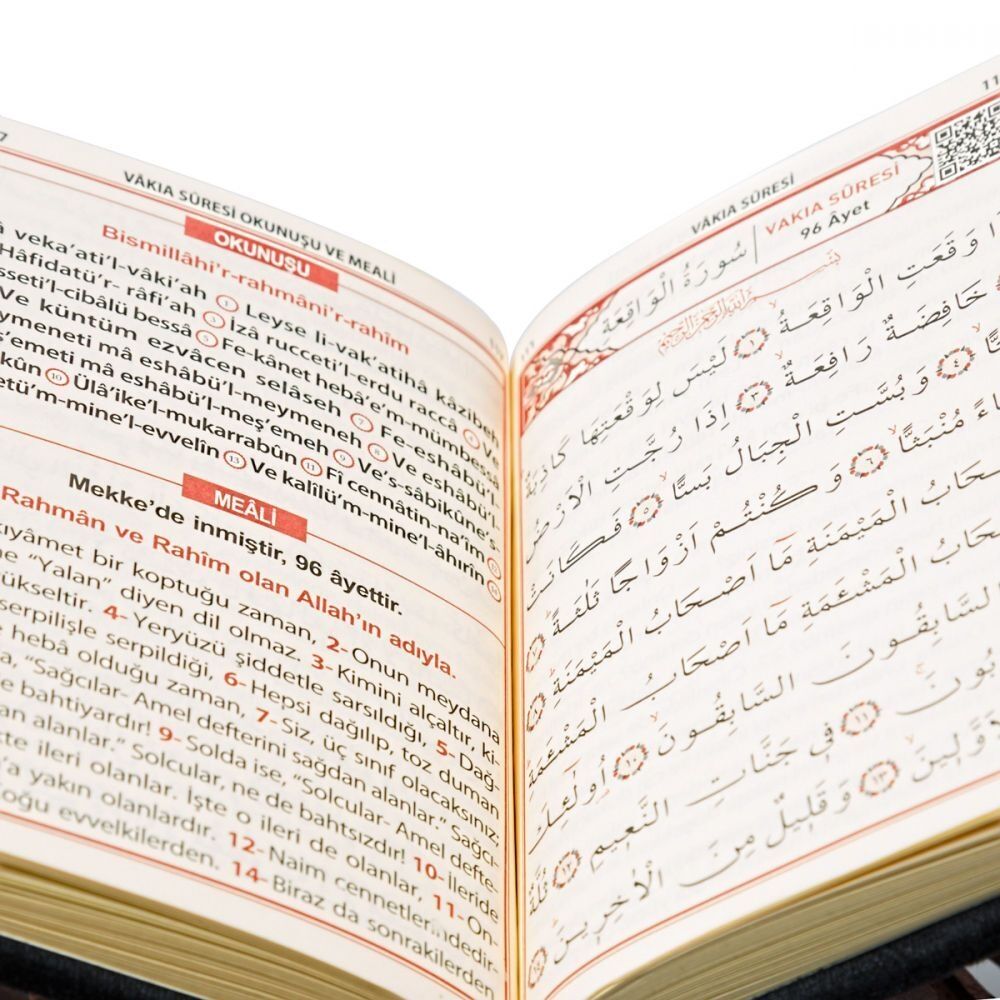 7
VÂKIA SÛRESİ OKUNUŞU VE MEALİ
OKUNUŞU
Bismillâhi'r-rahmâni'r-rahîm
veka'ati'l-vâki'ah ① Leyse li-vak'atihâ kâzibeh
Hâfidatü'r- râfi'ah ③ İzâ rucceti'l-erdu raccâ ④ Ve
sseti'l-cibâlü bessâ ⑤ Fe-kânet hebâ'e'm-mümbessâ
Ve küntüm ezvâcen selâseh ⑦ Fe-eshâbü'l-
ymeneti mâ eshâbü'l-meymeneh ⑧ Ve eshâbü'l-
ş'emeti mâ eshâbü'l-meş'emeh ⑨ Ve's-sâbikûne's-
kûn ⑩ Ülâ'ike'l-mukarrabûn ⑪ Fî cennâtin-na'îm ⑫
etü'm-mine'l-evvelîn ⑬ Ve kalîlü'm-mine'l-âhırîn ⑭
MEÂLİ
Mekke'de inmiştir, 96 âyettir.
Rahmân ve Rahîm olan Allah'ın adıyla.
kıyâmet bir koptuğu zaman, 2- Onun meydana
ne "Yalan" diyen dil olmaz. 3- Kimini alçaltır, ki-
yükseltir. 4- Yeryüzü şiddetle sarsıldığı, 5- Dağ-
serpilişle serpildiği, 6- Hepsi dağılıp, toz duman
e hebâ olduğu zaman, 7- Siz, üç sınıf olacaksınız;
a, "Sağcılar- Amel defterini sağdan alanlar." Sağcı-
e bahtiyardır! 9- Solda ise, "Solcular- Amel defte-
an alanlar." Solcular, ne de bahtsızdır! 10- İleride
te ileri olanlar. İşte o ileri de olanlar, 11- On-
'a yakın olanlardır. 12- Naim cennetlerindedir-
Çoğu evvelkilerden. 14- Biraz da sonrakilerden
11
VÂKIA SÛRESİ
سُورَةُ الْوَاقِعَةِ
VAKIA SÛRESİ
96 Âyet
وَقَعَتِ الْوَاقِعَةُ ﴿١﴾ لَيْسَ لِوَقْعَتِهَا كَاذِبَةٌ
خَافِضَةٌ رَافِعَةٌ ﴿٣﴾ اِذَا رُجَّتِ الْاَرْضُ
﴿٤﴾ وَبُسَّتِ الْجِبَالُ بَسًّا ﴿٥﴾ فَكَانَتْ
مُنْبَثًّا ﴿٦﴾ وَكُنْتُمْ اَزْوَاجًا ثَلٰثَةً ﴿٧﴾
اَصْحَابُ الْمَيْمَنَةِ مَٓا اَصْحَابُ الْمَيْمَنَةِ ﴿٨﴾
اَصْحَابُ الْمَشْـَٔمَةِ مَٓا اَصْحَابُ الْمَشْـَٔمَةِ
السَّابِقُونَ السَّابِقُونَ ﴿١٠﴾ اُولٰٓئِكَ
﴿١١﴾ ف۪ي جَنَّاتِ النَّع۪يمِ ﴿١٢﴾ ثُلَّةٌ
﴿١٣﴾ وَقَل۪يلٌ مِنَ الْاٰخِر۪ينَ ﴿١٤﴾